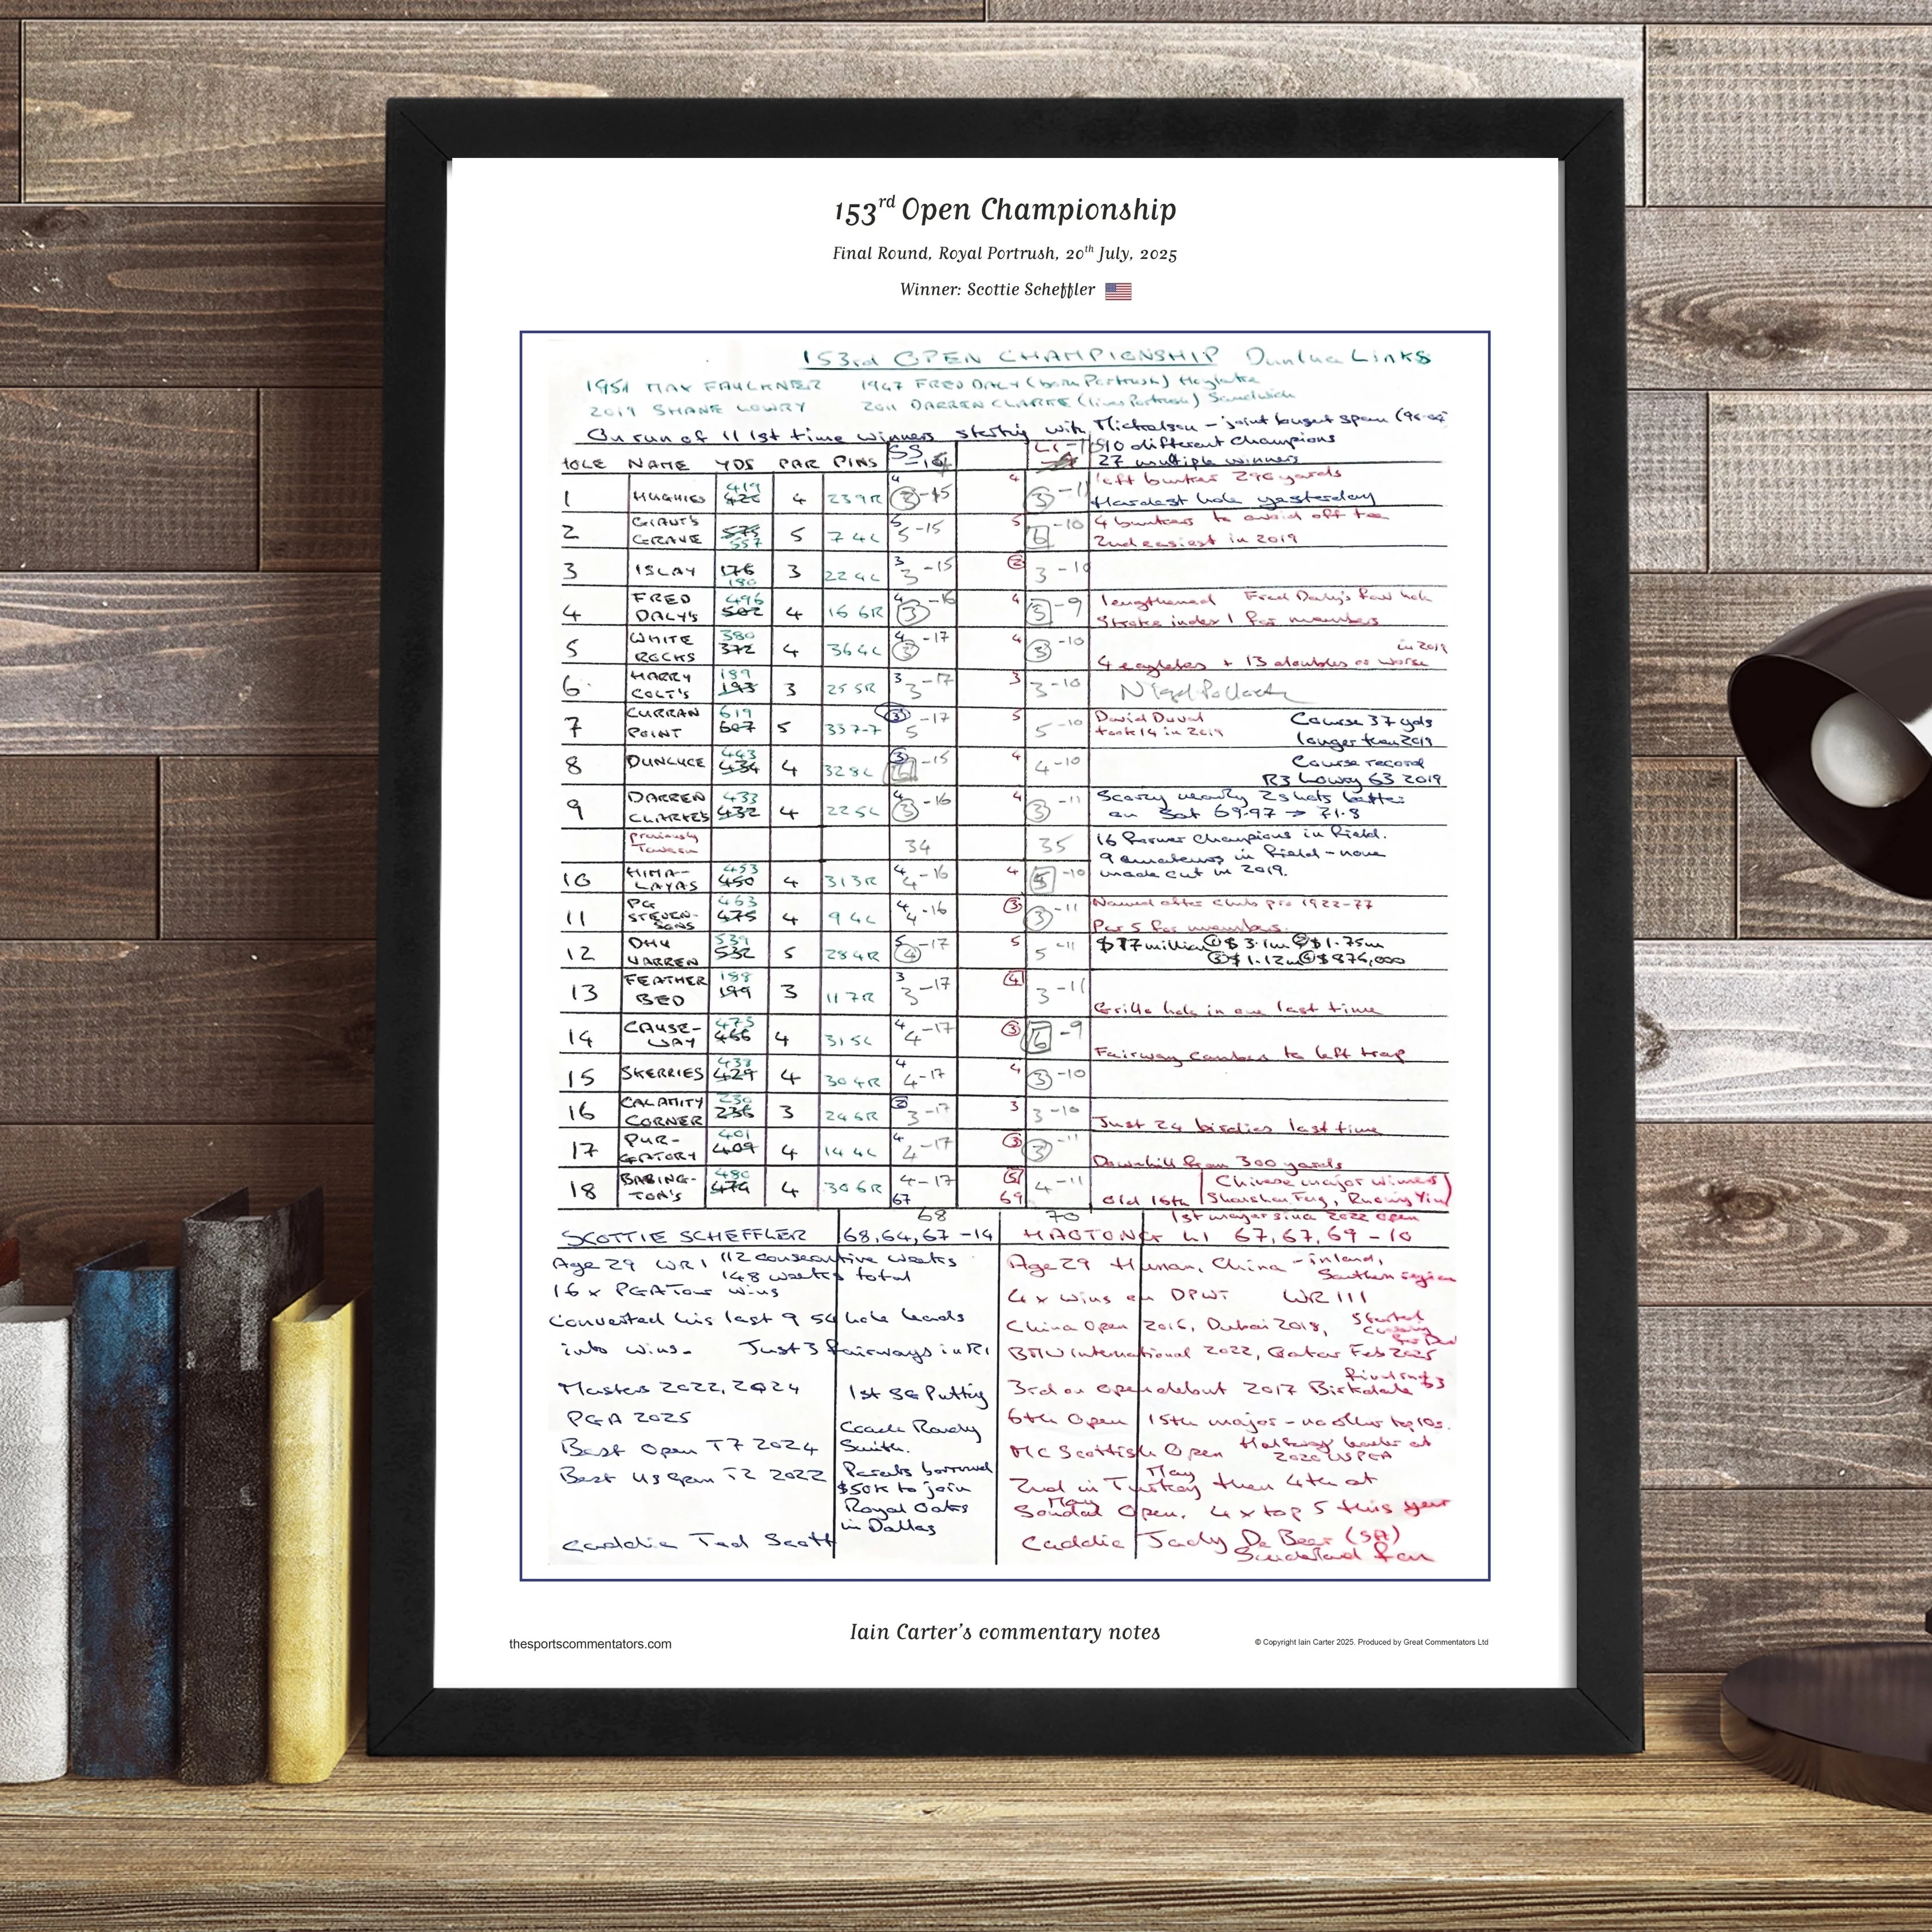 153rd Open Championship
Final Round, Royal Portrush, 20th July, 2025
Winner: Scottie Scheffler
153rd OPEN CHAMPIONSHIP Dunluce Links
1951 MAX FAULKNER 1947 FRED DALY (born Portrush) Hoylake
2019 SHANE LOWRY 2011 DARREN CLARKE (lives Portrush) Sandwich
On run of 11 1st time winners starting with Mickelson - joint longest span
10 different champions
HOLE NAME YDS PAR PINS SS 27 multiple winners
left bunker 296 yards
1 HUGHIES 419 426 4 239R 4 3 -15 4 3 -11 Hardest hole yesterday
2 GIANT'S GRAVE 575 557 5 74L 5 5 -15 5 6 -10 4 bunkers to avoid off tee
2nd easiest in 2019
3 ISLAY 176 180 3 224L 3 3 -15 2 3 -10
4 FRED DALY'S 496 502 4 166R 4 3 -16 4 5 -9 lengthened Fred Daly's fav hole
Stroke index 1 for members
5 WHITE ROCKS 380 372 4 364L 4 3 -17 4 3 -10 in 2019
4 eagles + 13 doubles or worse
6 HARRY COLT'S 189 193 3 255R 3 3 -17 3 3 -10
7 CURRAN POINT 619 607 5 337-7 3 5 -17 5 5 -10 David Duval took 14 in 2019 Course 37 yds longer than 2019
8 DUNLUCE 443 434 4 328L 3 6 -15 4 4 -10 Course record
R3 Lowry 63 2019
9 DARREN CLARKE'S 433 432 4 225L 4 3 -16 4 3 -11 Scoring nearly 2 shots better
on Sat 69.97 → 71.8
previously Tavern 34 35 16 former champions in field.
9 amateurs in field - none
made cut in 2019.
10 HIMA-LAYAS 453 450 4 313R 4 4 -16 4 5 -10
11 PG STEVEN-SONS 463 475 4 94L 4 4 -16 3 3 -11 Named after club pro 1922-77
Par 5 for members.
12 DHU VARREN 539 532 5 284R 5 4 -17 5 5 -11 $17 million ① $3.1m ② $1.75m
③ $1.12m ④ $876,000
13 FEATHER BED 188 199 3 117R 3 3 -17 4 3 -11
Grillo hole in one last time
14 CAUSE-WAY 473 466 4 315L 4 4 -17 3 6 -9
Fairway cambers to left trap
15 SKERRIES 438 429 4 304R 4 4 -17 4 3 -10
16 CALAMITY CORNER 230 236 3 246R 2 3 -17 3 3 -10
Just 24 birdies last time
17 PUR-GATORY 401 409 4 144L 4 4 -17 3 3 -11
Downhill from 300 yards
18 BABING-TON'S 480 474 4 306R 4 -17 5 4 -11 Chinese major winners
67 69 Old 16th Shanshan Feng, Ruoning Yin
68 70 1st major since 2022 Open
SCOTTIE SCHEFFLER 68, 64, 67 -14 HAOTONG LI 67, 67, 69 -10
Age 29 WR1 112 consecutive weeks
148 weeks total
16 x PGA Tour wins
Converted his last 9 54 hole leads
into wins. Just 3 fairways in R1
Masters 2022, 2024
PGA 2025
Best Open T7 2024
Best US Open T2 2022
Caddie Ted Scott
1st SG Putting
Coach Randy
Smith.
Parents borrowed
$50k to join
Royal Oaks
in Dallas
Age 29 Hunan, China - inland,
Southern region
4 x wins on DPWT WR 111
China Open 2016, Dubai 2018, Started
BMW International 2022, Qatar Feb 2025
3rd on Open debut 2017 Birkdale final rnd 63
6th Open 15th major - no other top 10s.
MC Scottish Open Halfway leader at
2020 USPGA
2nd in Turkey May then 4th at
Soudal Open. May 4 x top 5 this year
Caddie Jady De Beer (SA)
Sunderland fan
Iain Carter's commentary notes
thesportscommentators.com
© Copyright Iain Carter 2025. Produced by Great Commentators Ltd